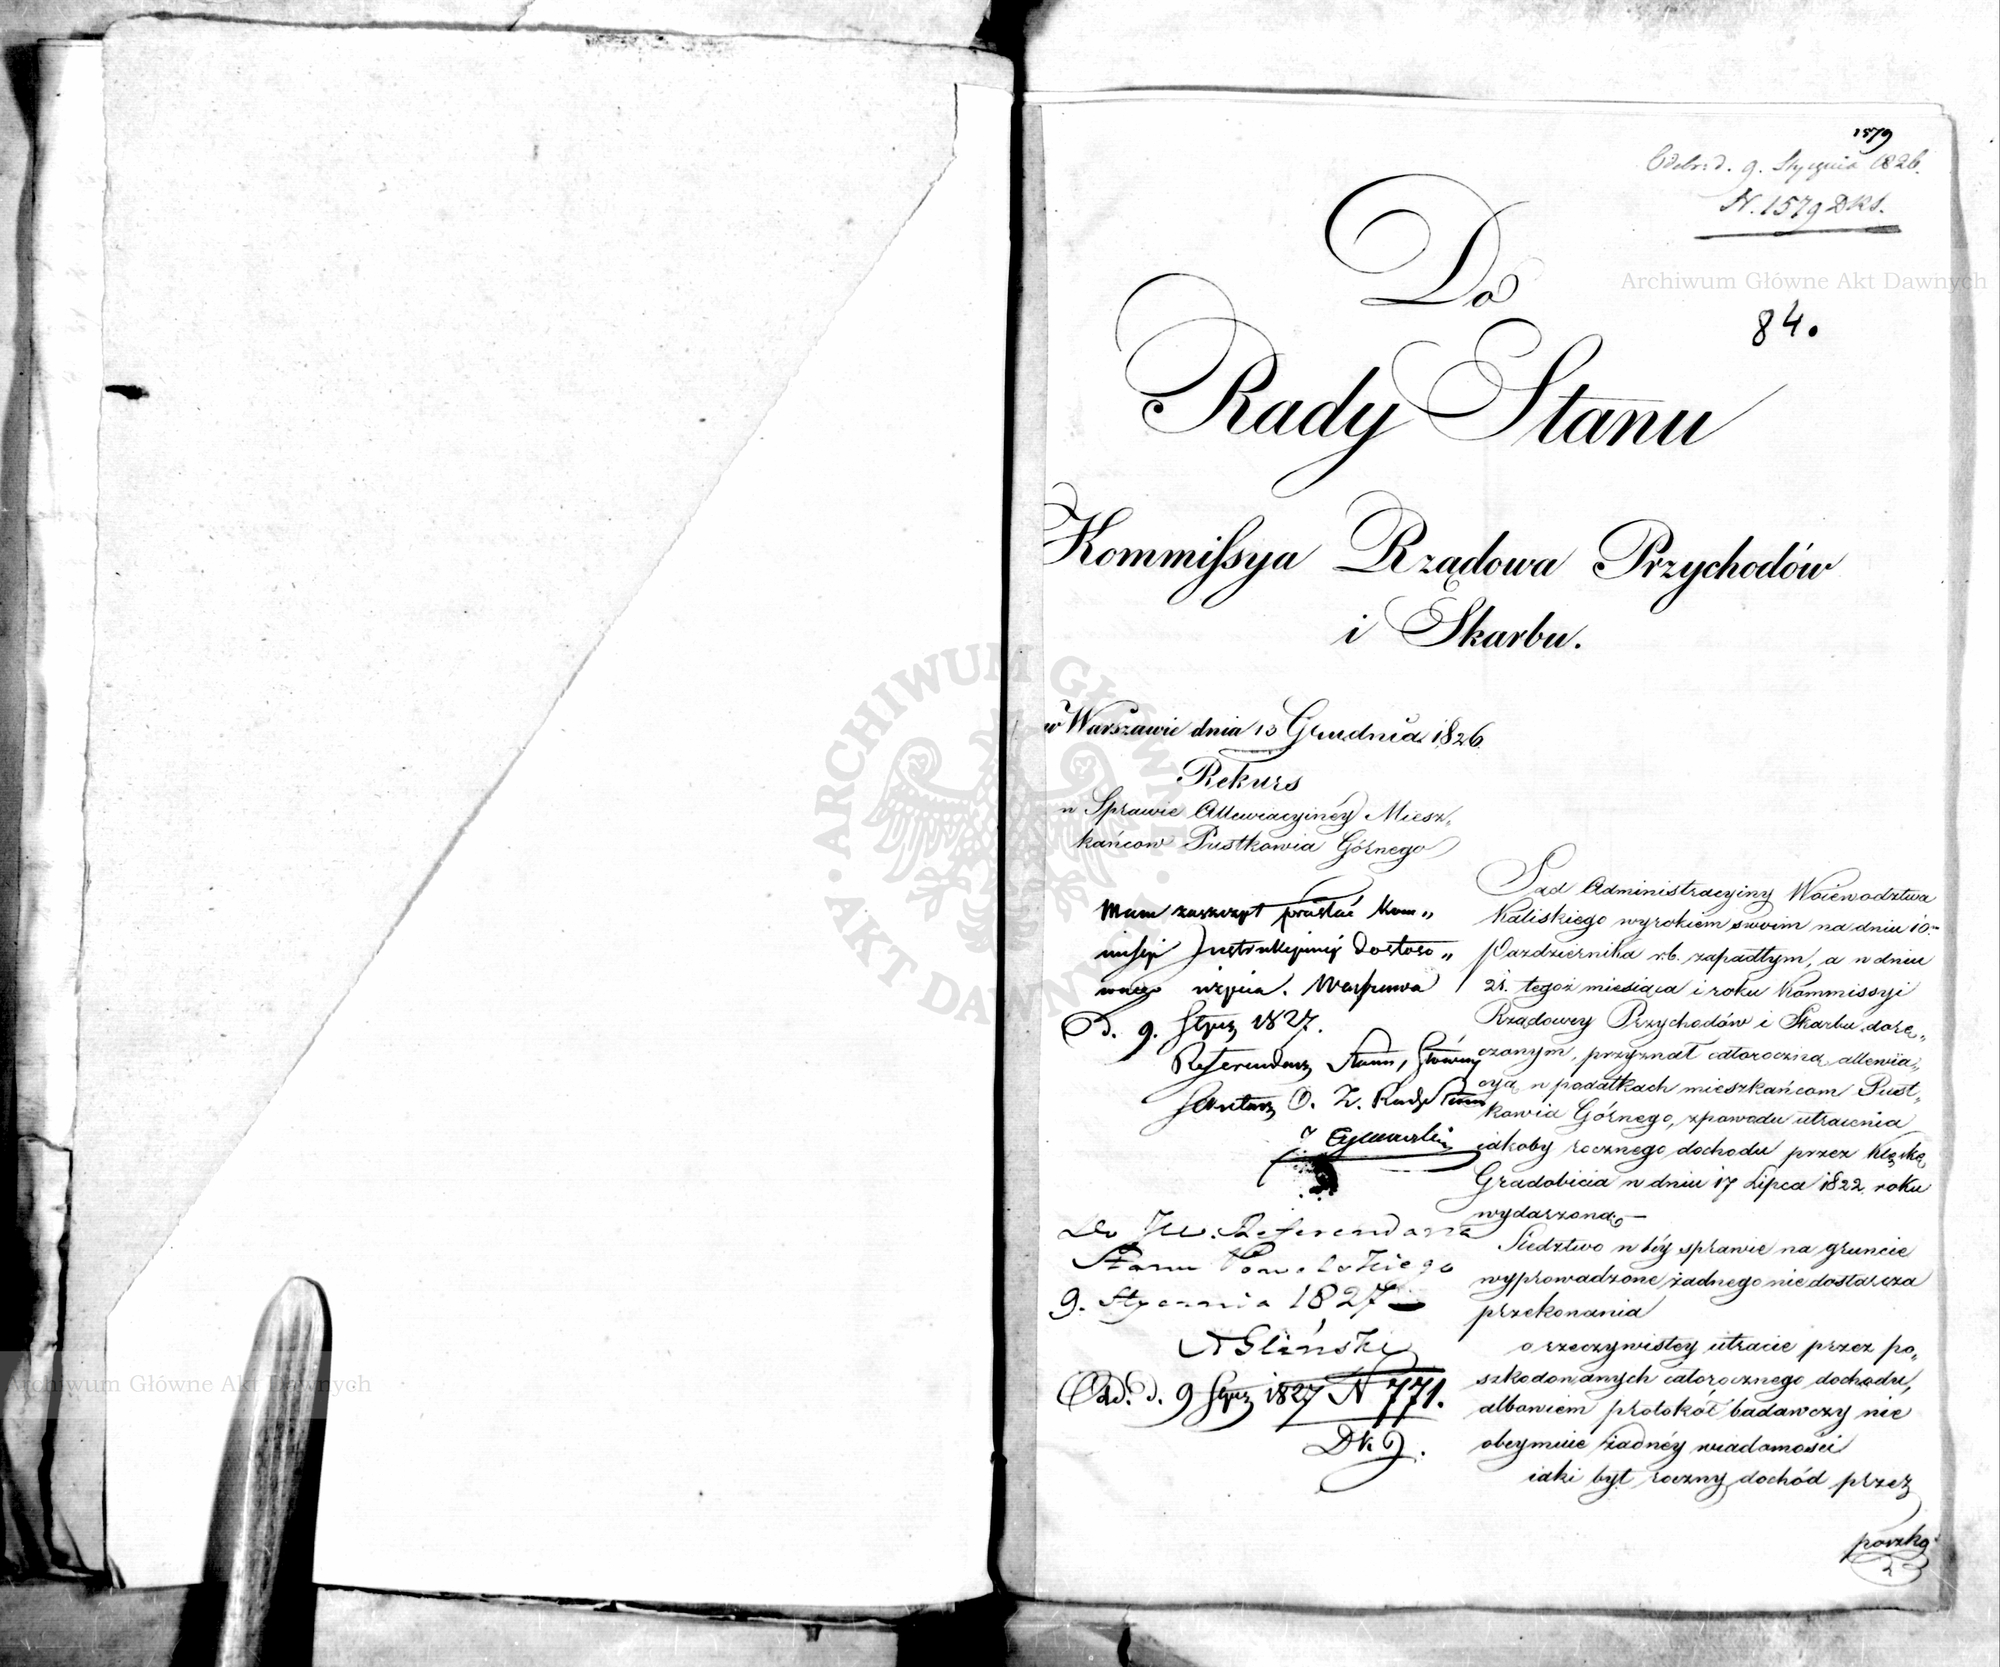 1579
Odebr. d. 9. Stycznia 1826.
N. 1579 DKS.
Archiwum Główne Akt Dawnych
84.
Do
Rady Stanu
Kommissya Rządowa Przychodów
i Skarbu.
w Warszawie dnia 13 Grudnia 1826
Rekurs
w Sprawie Allewiacyiney Miesz-
kańcow Pustkowia Górnego
Mam zaszczyt przesłać Kom-
missyi Instrukcyiney dostoso-
wnego użycia. Warszawa
d. 9. Stycz 1827.
Referendarz Stanu,
Sekretarz
Do JW. Referendarza
Stanu
9. Stycznia 1827
AGliński
Od. d. 9 Stycz 1827 N 771.
Sąd Administracyiny Woiewodztwa
Kaliskiego wyrokiem swoim na dniu 10
Pazdziernika r.b. zapadłym, a w dniu
21. tegoż miesiąca i roku Kommissyi
Rządowey Przychodów i Skarbu dorę-
czonym, przyznał całoroczną allewia-
cyą w podatkach mieszkańcom Pust-
kowia Górnego, z powodu utracenia
iakoby rocznego dochodu przez klęskę
Gradobicia w dniu 17 Lipca 1822 roku
wydarzoną.—
Śledztwo w téy sprawie na gruncie
wyprowadzone żadnego niedostarcza
przekonania
o rzeczywistey utracie przez po-
szkodowanych całorocznego dochodu,
albowiem protokół badawczy nie
obeymuie żadnéy wiadomości
iaki był roczny dochód przez
poszko
Archiwum Główne Akt Dawnych
ARCHIWUM GŁÓWNE AKT DAWNYCH